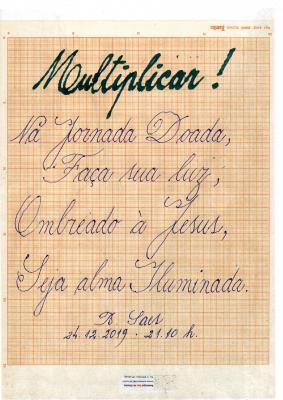 Multiplicar!
Na Jornada Doada,
Faça sua luz,
Ombreado à Jesus,
Seja alma Iluminada.
24.12.2019 - 21.10 h.